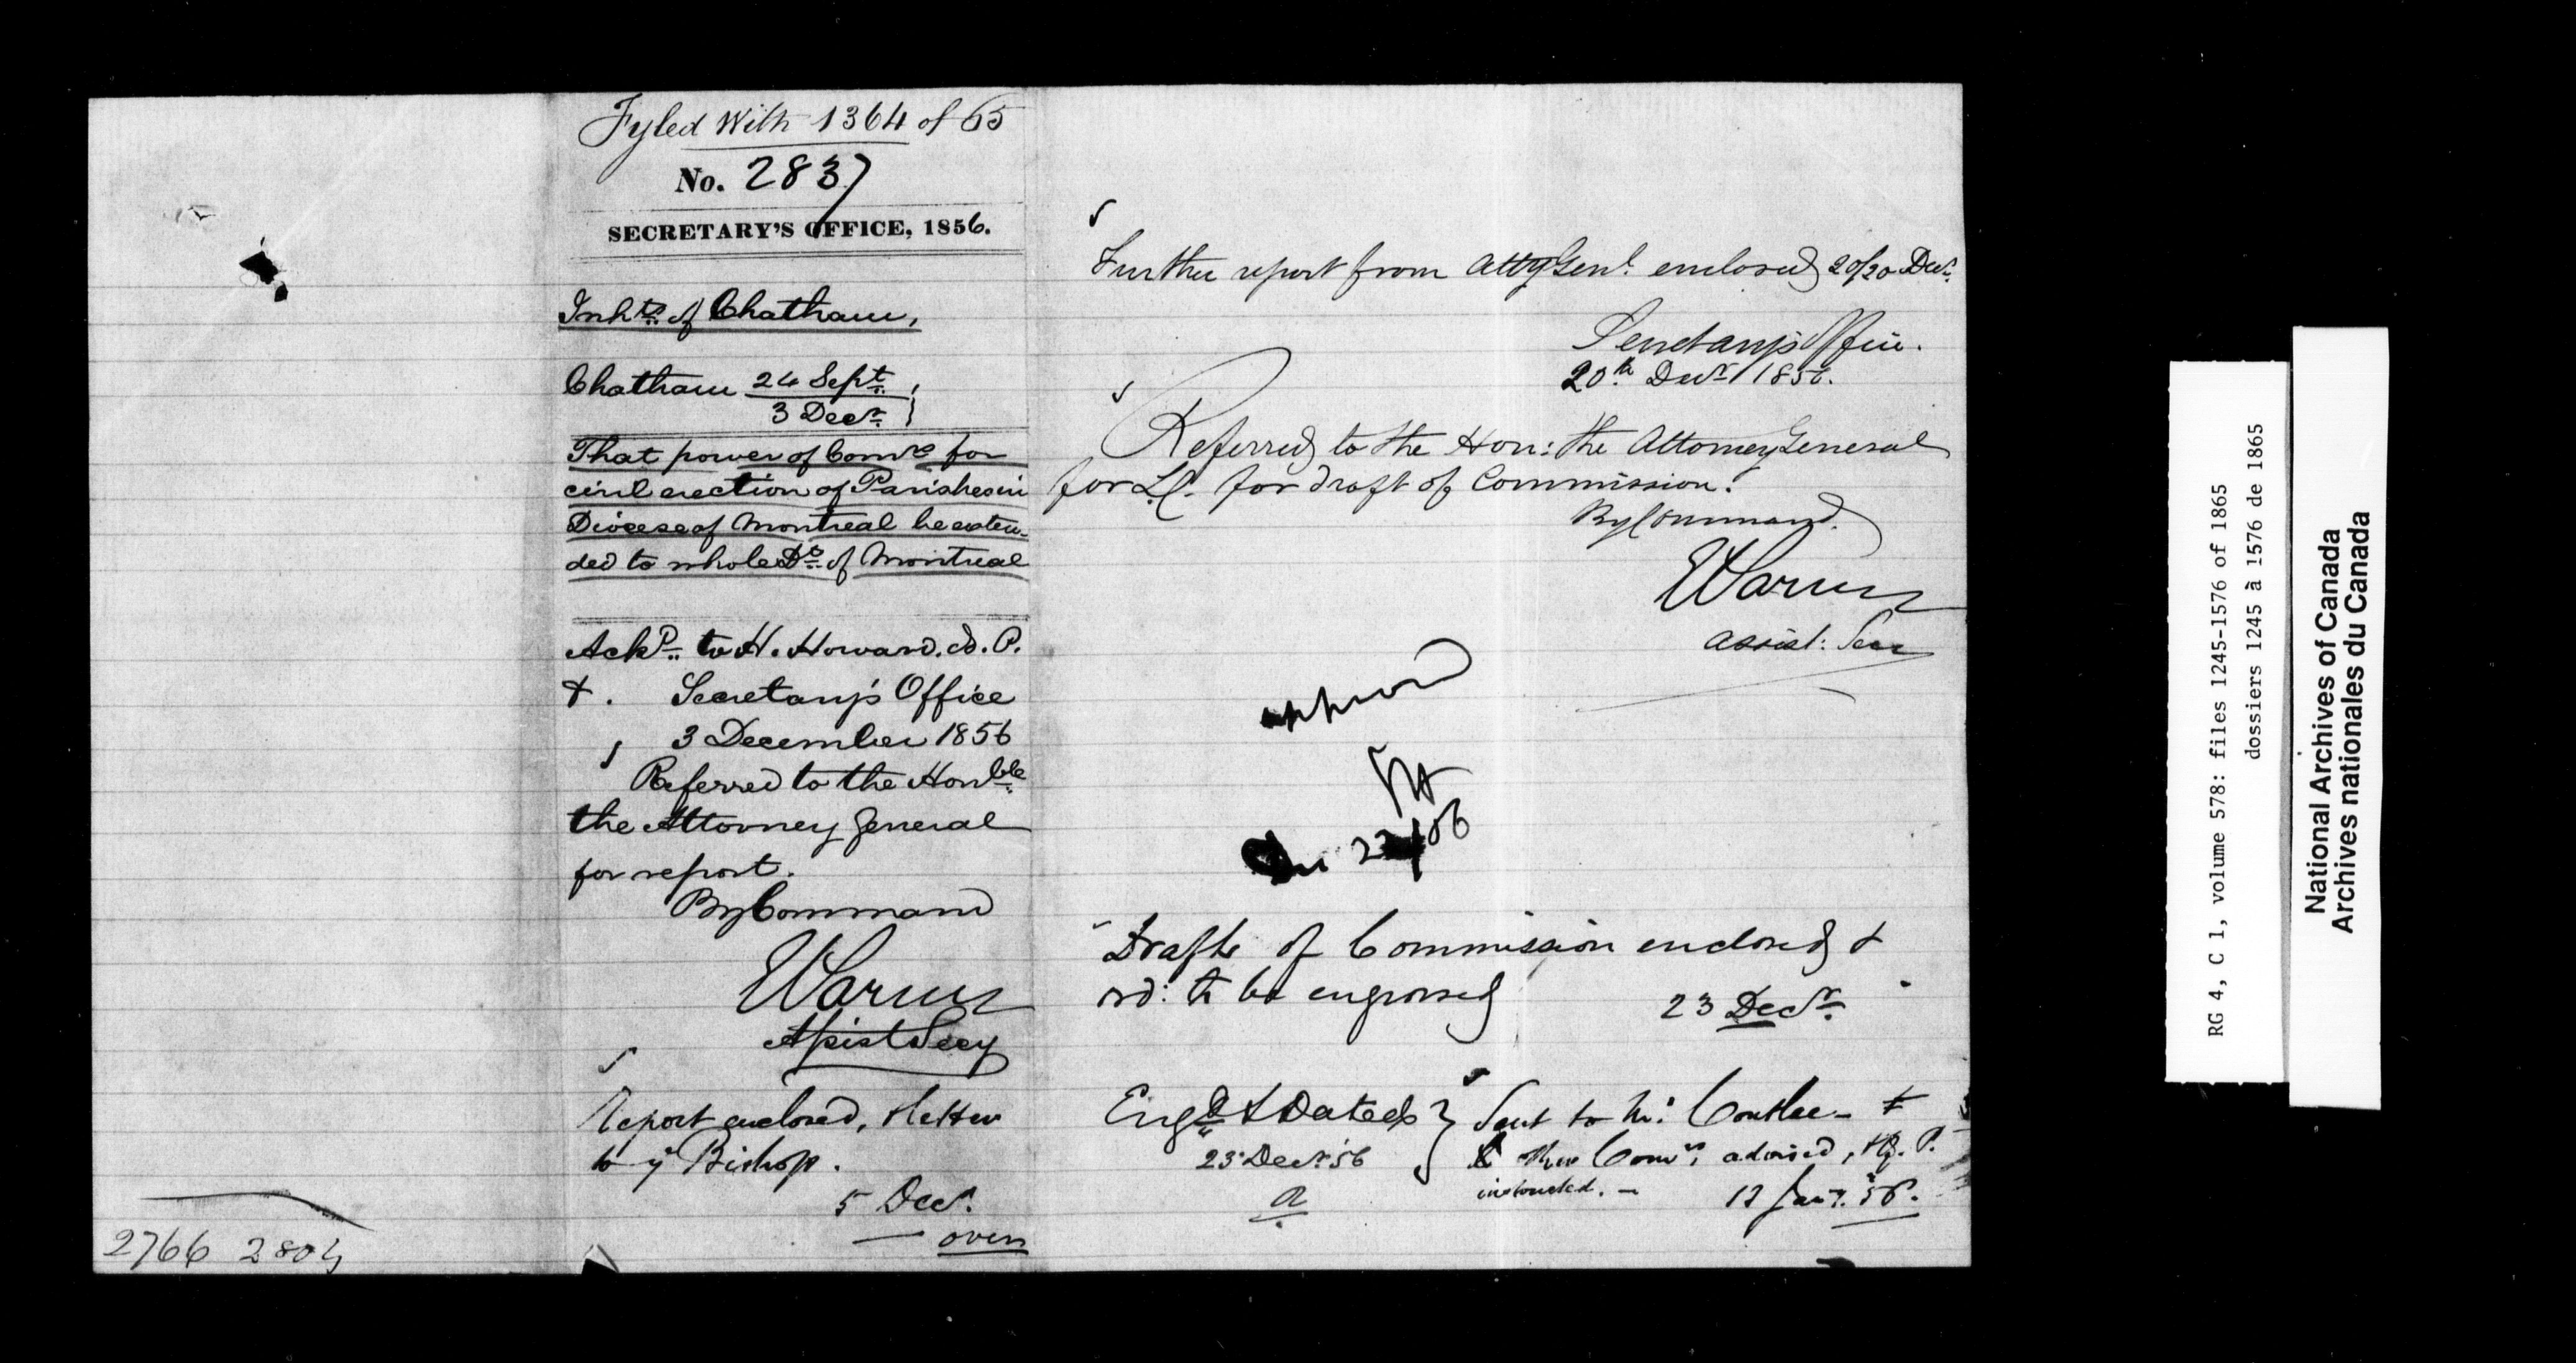 Fyled With 1364 of 65
No. 2837
SECRETARY'S OFFICE, 1856.
Inhts. of Chatham,
Chatham 24 Sept.
3 Decr.
That power of Comrs for
civil erection of Parishes in
Diocese of Montreal be exten-
ded to whole Dt. of Montreal
Ackd. to H. Howard. M. P.
Secretary's Office
3 December 1856
Referred to the Honble
the Attorney General
for report.
By Command
Assist Secy
Report enclosed, & letter
to ye Bishop.
5 Decr.
over
2766 2804
Further report from Atty Genl. enclosed 20/20 Decr.
Secretary's Office.
20th Decr 1856.
Referred to the Hon: the Attorney General
for L.C. for draft of Commission.
By Command.
Assist: Secy
approved
23/56
Drafts of Commission enclosed &
ord: to be engrossed
23 Decr.
Engd. & Dated
23 Decr '56
Sent to Mr.
other Comrs. advised,
instructed. –
RG 4, C 1, volume 578: files 1245-1576 of 1865
dossiers 1245 à 1576 de 1865
National Archives of Canada
Archives nationales du Canada